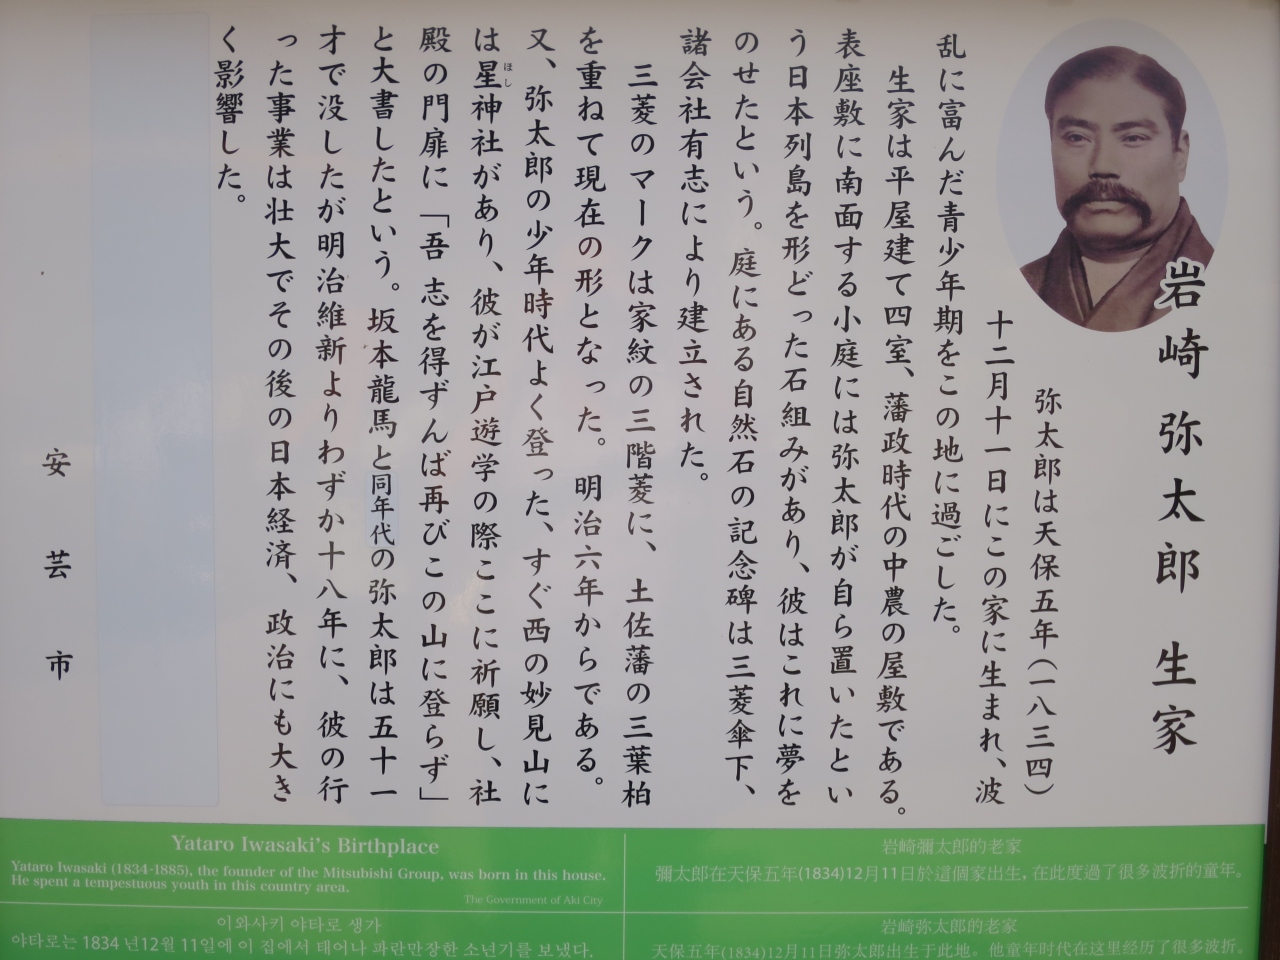 岩崎 弥太郎 生家
弥太郎は天保五年(一八三四)
十二月十一日にこの家に生まれ、波
乱に富んだ青少年期をこの地に過ごした。
生家は平屋建て四室、藩政時代の中農の屋敷である。
表座敷に南面する小庭には弥太郎が自ら置いたとい
う日本列島を形どった石組みがあり、彼はこれに夢を
のせたという。庭にある自然石の記念碑は三菱傘下、
諸会社有志により建立された。
三菱のマークは家紋の三階菱に、土佐藩の三葉柏
を重ねて現在の形となった。明治六年からである。
又、弥太郎の少年時代よく登った、すぐ西の妙見山に
は星神社があり、彼が江戸遊学の際ここに祈願し、社
ほし
殿の門扉に「吾 志を得ずんば再びこの山に登らず」
と大書したという。坂本龍馬と同年代の弥太郎は五十一
才で没したが明治維新よりわずか十八年に、彼の行
った事業は壮大でその後の日本経済、政治にも大き
く影響した。
安芸市
Yataro Iwasaki's Birthplace
Yataro Iwasaki (1834-1885), the founder of the Mitsubishi Group, was born in this house.
He spent a tempestuous youth in this country area.
The Government of Aki City
岩崎彌太郎的老家
彌太郎在天保五年(1834)12月11日於這個家出生, 在此度過了很多波折的童年。
이와사키 야타로 생가
야타로는 1834 년12월 11일에 이 집에서 태어나 파란만장한 소년기를 보냈다.
岩崎弥太郎的老家
天保五年(1834)12月11日弥太郎出生于此地。他童年时代在这里经历了很多波折。